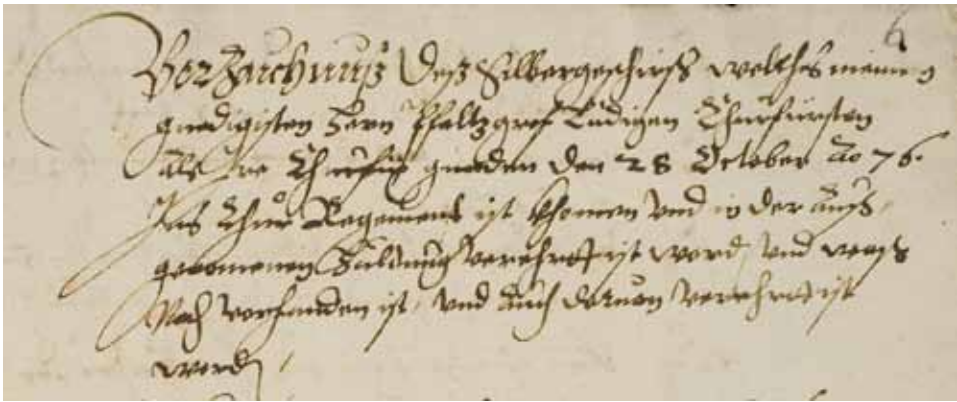 6
Verzaichnuß Deß Silbergeschirß welches meinem
gnedigisten Hern Pfaltzgraf Ludigen Churfürsten
als Ire Churfür gnaden den 28 October Ao 76.
Ins Chur Regement ist khomen vnd in der auff
genomenen Huldung verehret ist word, vnd was
Noch vorhanden ist, vnd auch daruon verehret ist
word,